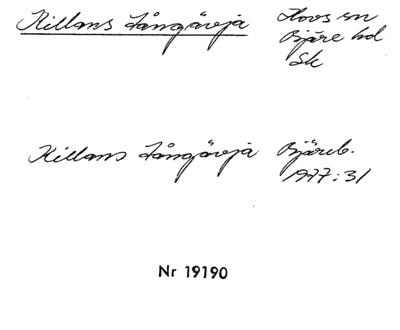 Killans Långäveja Hovs sn
Bjäre hd
Sk
Killans Långäveja Bjäreb.
1977:31
Nr 19190